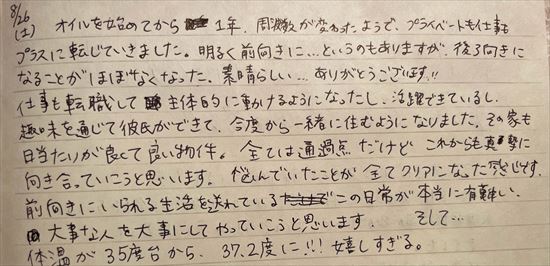 8/26
(土) オイルを始めてから 1年、周波数が変わったようで、プライベートも仕事も
プラスに転じていきました。明るく前向きに…というのもありますが、後ろ向きに
なることがほぼなくなった、素晴らしい…ありがとうございます!!
仕事も転職して 主体的に動けるようになったし、活躍できているし、
趣味を通じて彼氏ができて、今度から一緒に住むようになりました。その家も
日当たりが良くて良い物件。全ては通過点だけど これからも真 勢に
向き合っていこうと思います。悩んでいたことが全てクリアになった感じです。
前向きにいられる生活を送れている この日常が本当に有難い。
大事な人を大事にしてやっていこうと思います。 そして…
体温が35度台から、37.2度に!!! 嬉しすぎる。